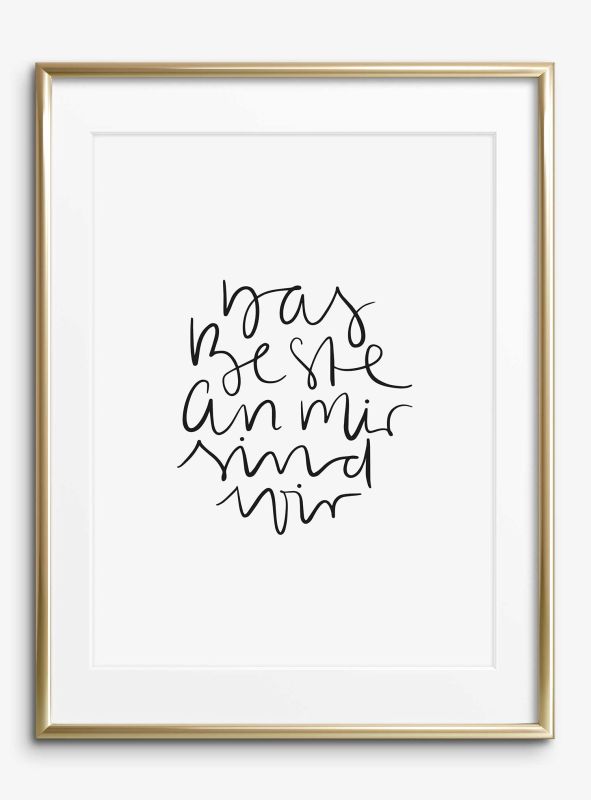 Das
Beste
an mir
sind
wir